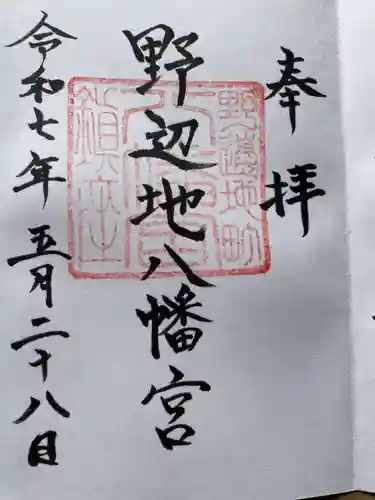 奉拝
野辺地八幡宮
令和七年五月二十八日
野邊地町
八幡宮
鎮座